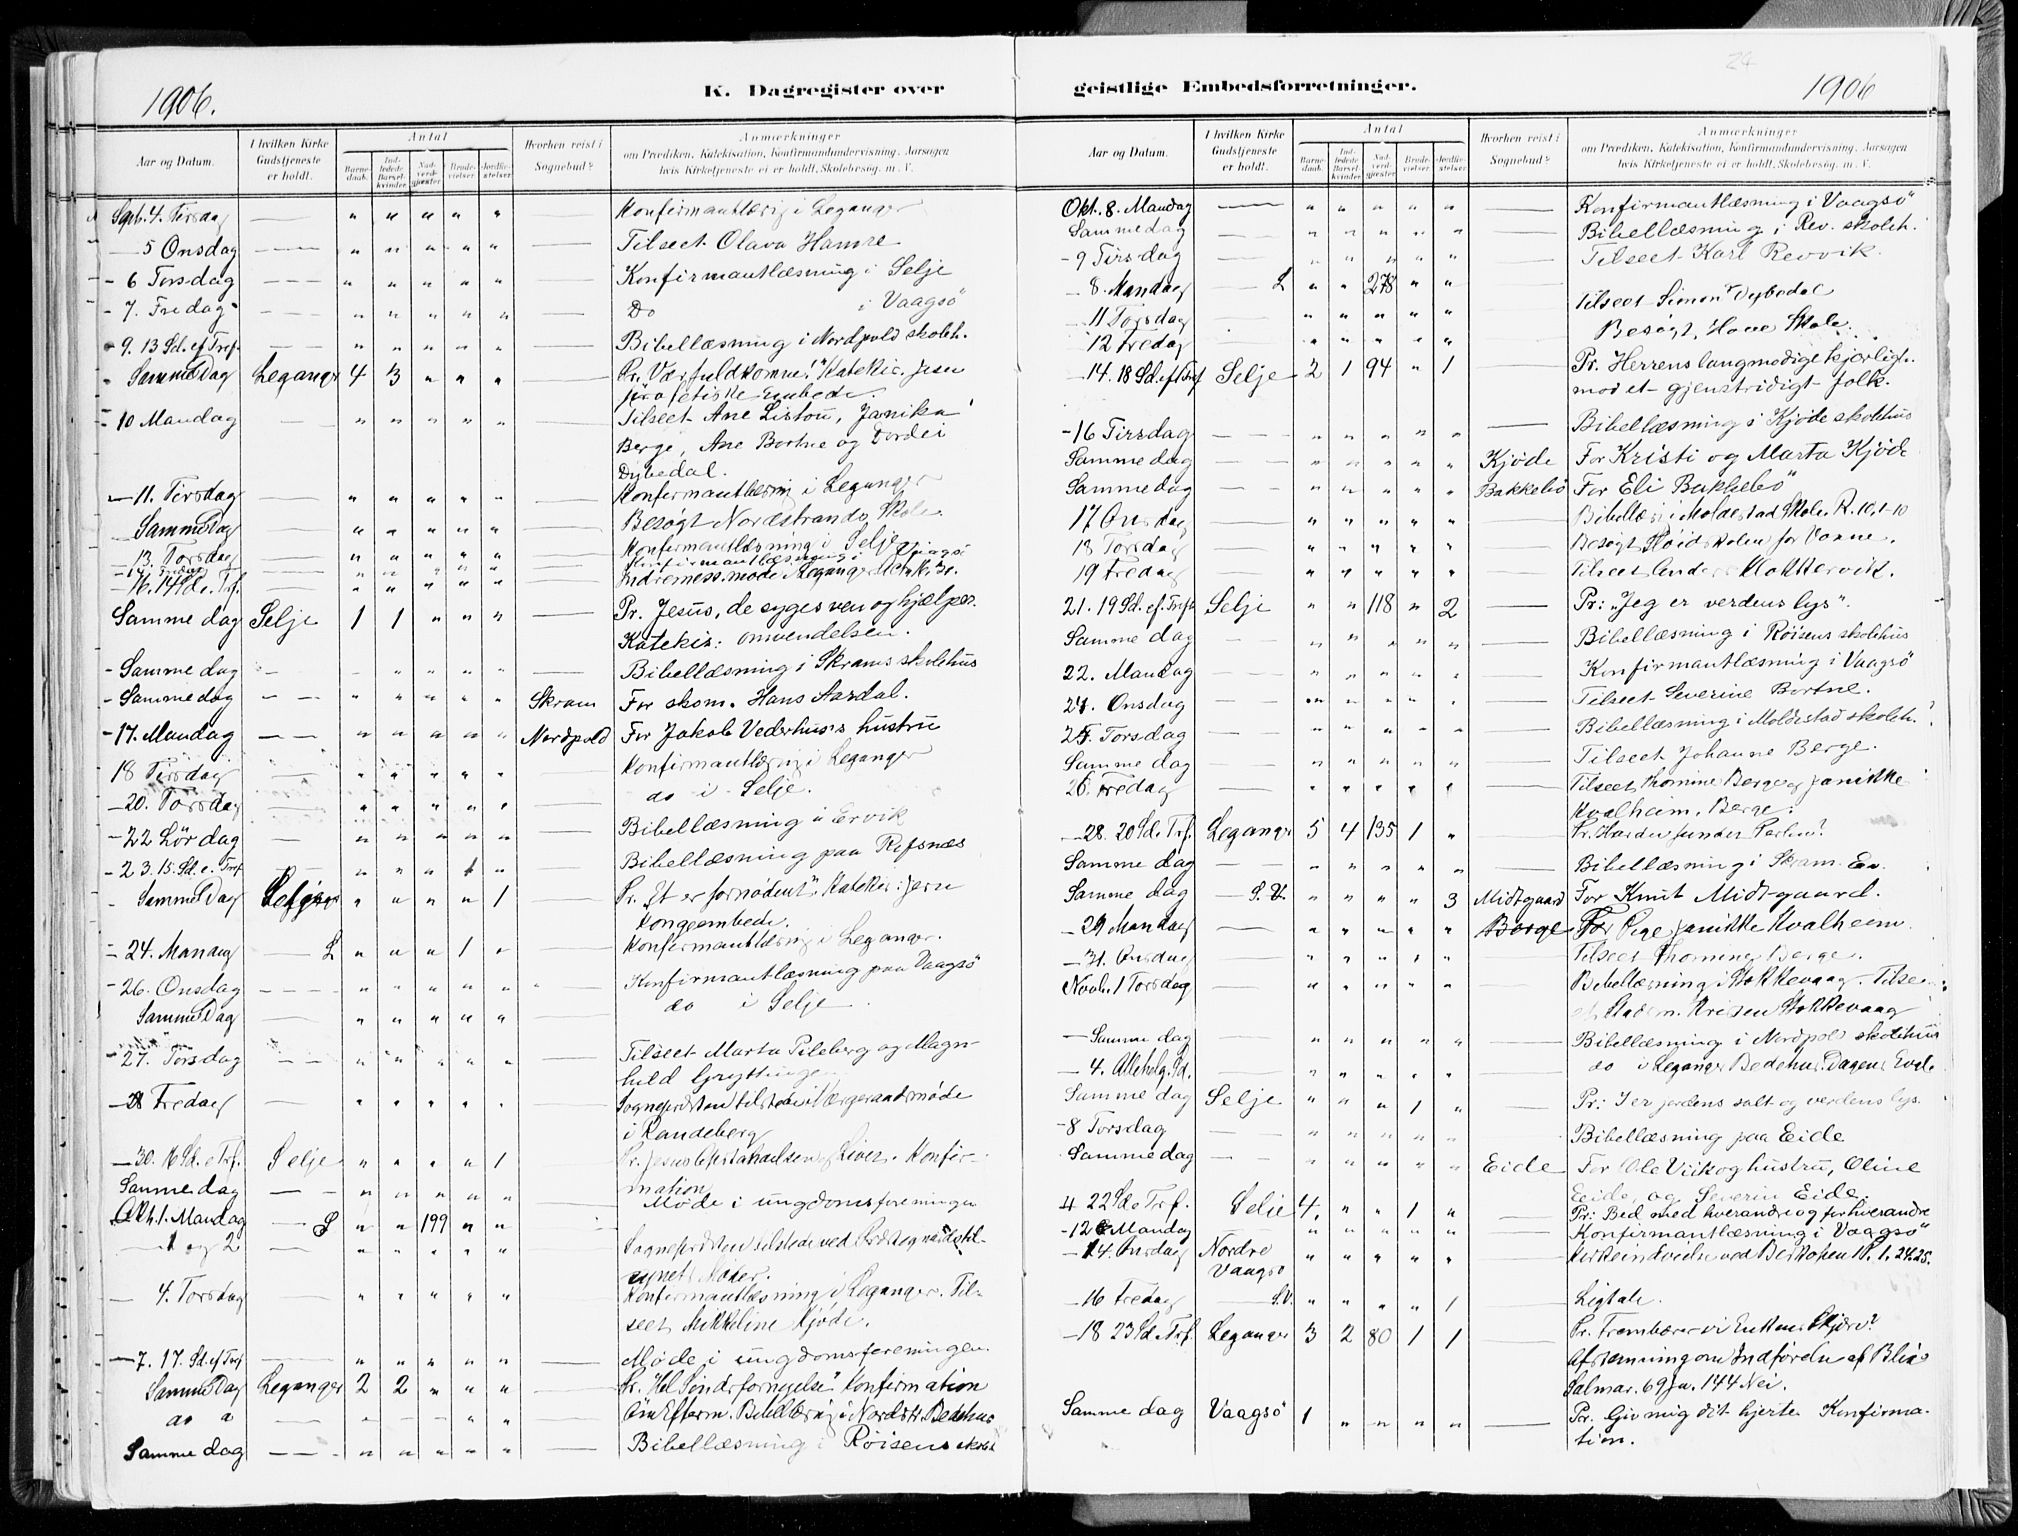 1906.
K. Dagregister over
Aar og Datum.
I hvilken Kirke Gudstjeneste er holdt.
Antal
Barnedaab.
Indledede Barselkvinder
Nadverdgjæster
Brudevielser
Jordfæstelser
Hvorhen reist i Sognebud?
Anmærkninger
om Prædiken, Katekisation, Konfirmandundervisning, Aarsagen
hvis Kirketjeneste ei er holdt, Skolebesøg, m. V.
Septb. 4. Tirsdag — " " " " " Konfirmantlæsng i Leganger
5 Onsdag — " " " " " — Tilseet Olava Hamre
- 6 Torsdag — " " " " " — Konfirmantlæsning i Selje
- 7. Fredag — " " " " " — Do i Vaagsö
- 9. 13 Sd. ef. Tref. — " " " " " — Bibellæsning i Nordpold skoleh.
Samme Dag Leganger 4 3 " " " — Pr. Vær fuldkomne! Katekis. Jesu
profetiske Embede.
- 10 Mandag — " " " " " — Tilseet Ane Listou, Janika
Berge, Ane Bortne og Dordei
Dybedal.
- 11. Tirsdag — " " " " " — Konfirmantlæsng i Leganger
Samme Dag — " " " " " — Besøgt Nordstrands Skole
13. Torsdag — " " " " " — Konfirmantlæsning i Selje
- 14. Fredag — " " " " " — Konfirmantlæsning i Vaagsö
- 16. 14 Sd. e. Trf. — " " " " " — Indremiss. møde i Leganger
Samme dag Selje 1 1 " " " — Pr. Jesus, de syges ven og hjælper.
Katekis: omvendelsen.
- Samme dag — " " " " — Bibellæsning i Skrams skolehus
- Samme dag — " " " " " Skram For skom. Hans Aardal.
- 17. Mandag — " " " " " Nordpold For Jakob Vederhus's hustru
18 Tirsdag — " " " " " — Konfirmantlæsng i Leganger
- 20. Torsdag — " " " " " — do i Selje.
- 22 Lördag — " " " " " — Bibellæsning i Ervik
- 23. 15. Sd. e. Trf. — " " " " — Bibellæsning paa Refsnæs
Samme Dag " " " " 1 — Pr. Et er fornødent. Katekis: Jesu
kongeembede.
- 24. Mandag — L " " " 1 " — Konfirmantlæsng i Leganger.
- 26. Onsdag — " " " " " — Konfirmantlæsning paa Vaagsö
Samme Dag — " " " " " — do i Selje.
- 27. Torsdag — " " " " " — Tilseet Marta Pileberg og Magn-
hild Grytting
- 28 Fredag — " " " " " — Sognepresten tilstede i Værgeraadsmøde
i Randeberg
- 30. 16 Sd. e. Trf. Selje " " " " 1 — Konfir-
mation
Samme dag — " " " " " — Møde i ungdomsforeningen
Okt. 1. Mandag — S " " 199 " " —
- 1 og 2 — " " " " " — Sognepresten tilstede ved
synets Møder.
- 4. Torsdag — " " " " " — Konfirmantlæsning i Leganger. Til-
seet Mikkeline Kjøde.
- 7. 17. Sd. ef. Trf — " " " " " — Møde i ungdomsforeningen.
Samme Dag Leganger 2 2 " " " — Konfirmation
do — " " — Om Efterm. Bibellæsng i Nordstr. Bedehus
Samme dag — " " " " " — Bibellæsning i Röisens skoleh
24
1906
geistlige Embedsforretninger.
Aar og Datum.
I hvilken Kirke Gudstjeneste er holdt.
Antal
Barnedaab.
Indledede Barselkvinder
Nadverdgjæster
Brudevielser
Jordfæstelser
Hvorhen reist i Sognebud?
Anmærkninger
om Prædiken, Katekisation, Konfirmandundervisning, Aarsagen
hvis Kirketjeneste ei er holdt, Skolebesøg, m. V.
Okt. 8. Mandag — " " " " " — Konfirmantlæsning i Vaagsö
Samme dag — " " " " " — Bibellæsning i Rev. skoleh.
- 9 Tirsdag — " " " " " — Tilseet Karl Revvik.
- 8. Mandag — L " " 278 " "
11 Torsdag — " " " " " — Tilseet Simon Dybedal
12 Fredag — " " " " " — Besøgt Hove Skole.
- 14. 18 Sd. ef. Tref Selje 2 1 94 " 1 — Pr. Herrens langmodige kjærligh.
mod et gjenstridigt folk.
- 16 Tirsdag — " " " " " — Bibellæsning i Kjøde skolehus
Samme dag — " " " " " Kjøde For Kristi og Marta Kjøde
Samme dag — " " " " " Bakkebö For Eli Bakkebö
17 Onsdag — " " " " " — Bibellæs. i Moldestad Skole. R. 10, 1-10
18 Torsdag — " " " " " — Besøgt Höidskolen for Voxne.
19 Fredag — " " " " " — Tilseet
21. 19 Sd. ef. Trefr Selje " " 118 " 2 — Pr: "Jeg er verdens lys".
Samme dag — " " " " " — Bibellæsning i Röisens skolehus
22. Mandag — " " " " " — Konfirmantlæsning i Vaagsö
24. Onsdag — " " " " " — Tilseet Severine Bortne.
25. Torsdag — " " " " " — Bibellæsning i Moldestad skoleh.
Samme dag — " " " " " — Tilseet Johanne Berge.
26. Fredag — " " " " " — Tilseet Thomine Berge og Janikke
Kvalheim, Berge.
- 28. 20 Sd. e. Trf. Leganger 5 4 135 1 " — Pr. Har du funden Perlen?
Samme dag — " " " " " — Bibellæsning i Skram.
Samme dag — S. V. " " " " 3 Midtgaard For Knut Midtgaard.
- 29 Mandag — " " " " " Berge For Pige Janikke Kvalheim
- 31. Onsdag — " " " " " — Tilseet Thomine Berge.
Novb. 1 Torsdag — " " " " " — Bibellæsning i Stokkevaag. Tilse-
Stokkevaag
- Samme dag — " " " " " — Bibellæsning i Nordpold skolehus
- 4. Allehelg. Sd. — " " " " " — do i Leganger Bedehus. Dagens Evgl.
Samme dag Selje " " " 1 " — Pr: I er jordens salt og verdens lys.
- 8 Torsdag — " " " " " — Bibellæsning paa Eide
Samme dag — " " " " " Eide For Ole Viik og hustru, Oline
Eide, og Severin Eide.
4 22 Sd. e. Trf. Selje 4. " " 1 " — Pr: Bed med hverandre og for hverandre
- 12 Mandag — " " " " " — Konfirmantlæsning i Vaagsö
- 14. Onsdag Nordre Vaagsö " " " " " — Kirkeindvielse ved Biskopen
- 16 Fredag — S.V. " " " " 1 — Ligtale.
- 18 23 Sd. e. Trf. Leganger 3 2 80 1 1 — Pr. Frembærer vi Enkens Skjærv?
Afstemning om Indførelse af Blix's
Salmer. 69 Ja. 144 Nei.
Samme dag Vaagsö 1 " " " " — Pr. Giv mig dit hjerte. Konfirma-
tion.